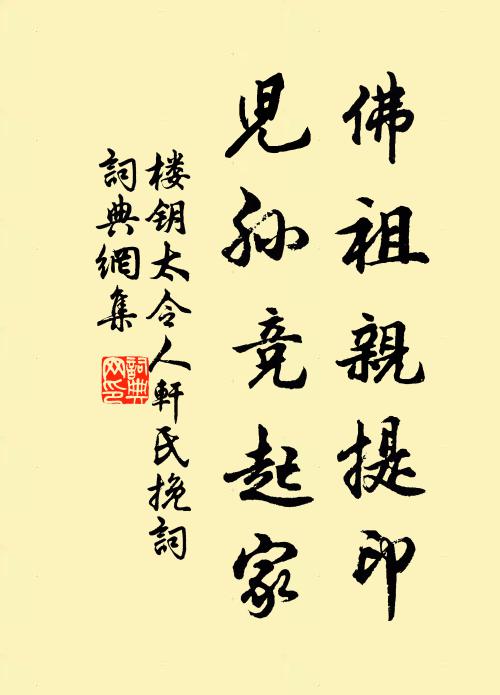 佛祖親提印
児孫竞起家
楼钥太令人軒氏挽詞
詞典網集
詞典网印